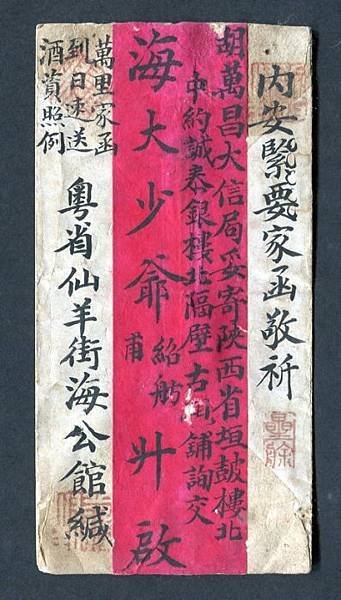 內安緊要家函敬祈
胡萬昌大信局妥寄陝西省垣鼓樓北
巾約誠泰銀樓北隔壁古 舖詢交
海大少爺 紹舫甫 升啟
萬里家函
到日速送
酒資照例
粵省仙羊街海公館緘